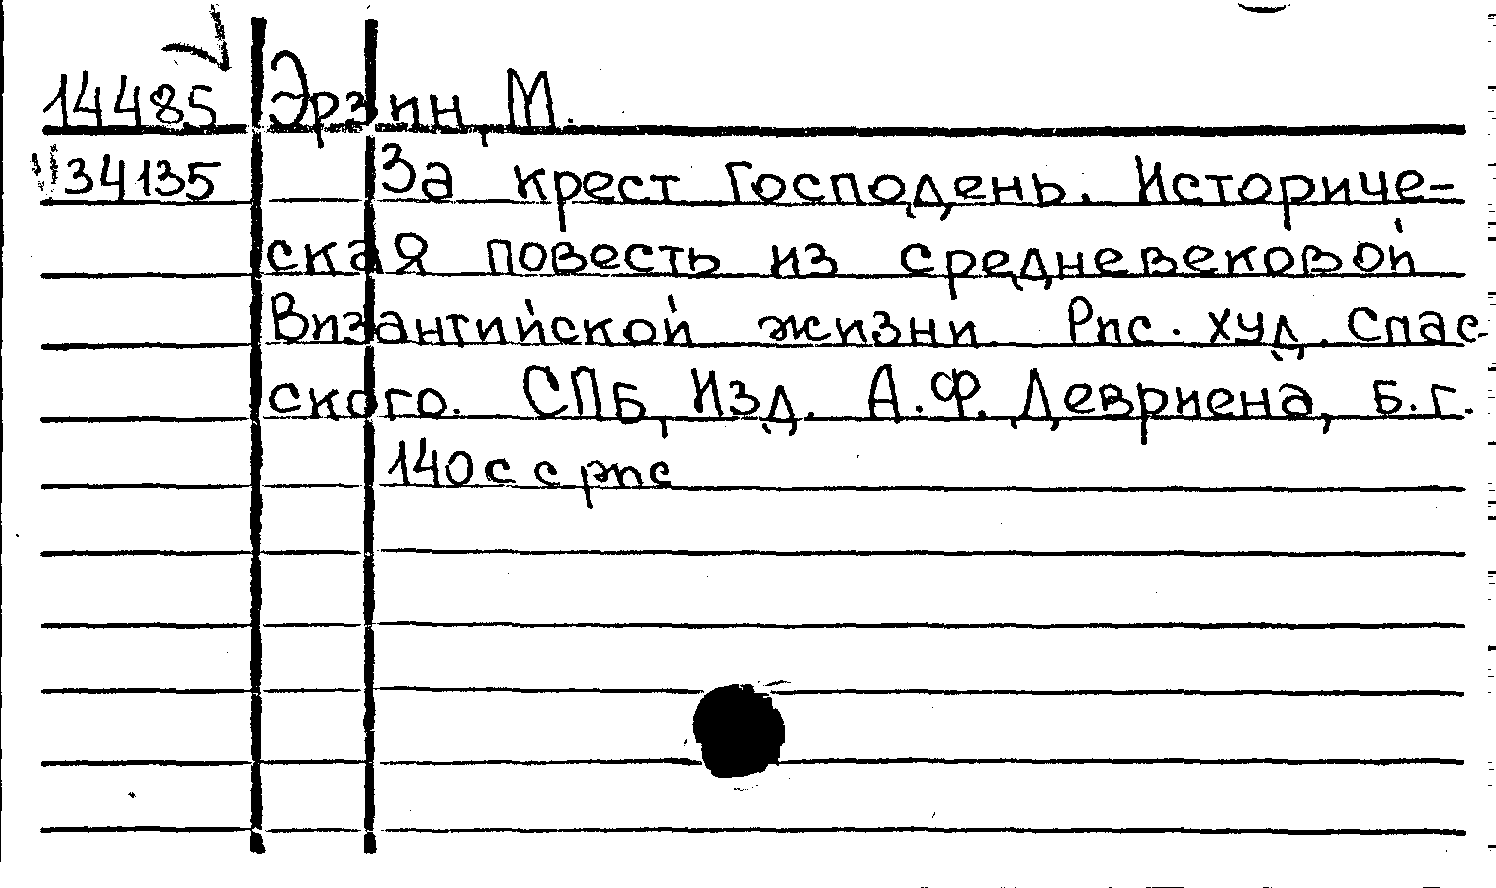 14485 Эрзин, М.
34135 За крест Господень. Историче-
ская повесть из средневековой
Византийской жизни. Рис. худ. Спас-
ского. СПБ, Изд. А.Ф. Девриена, б.г.
140 с с рис